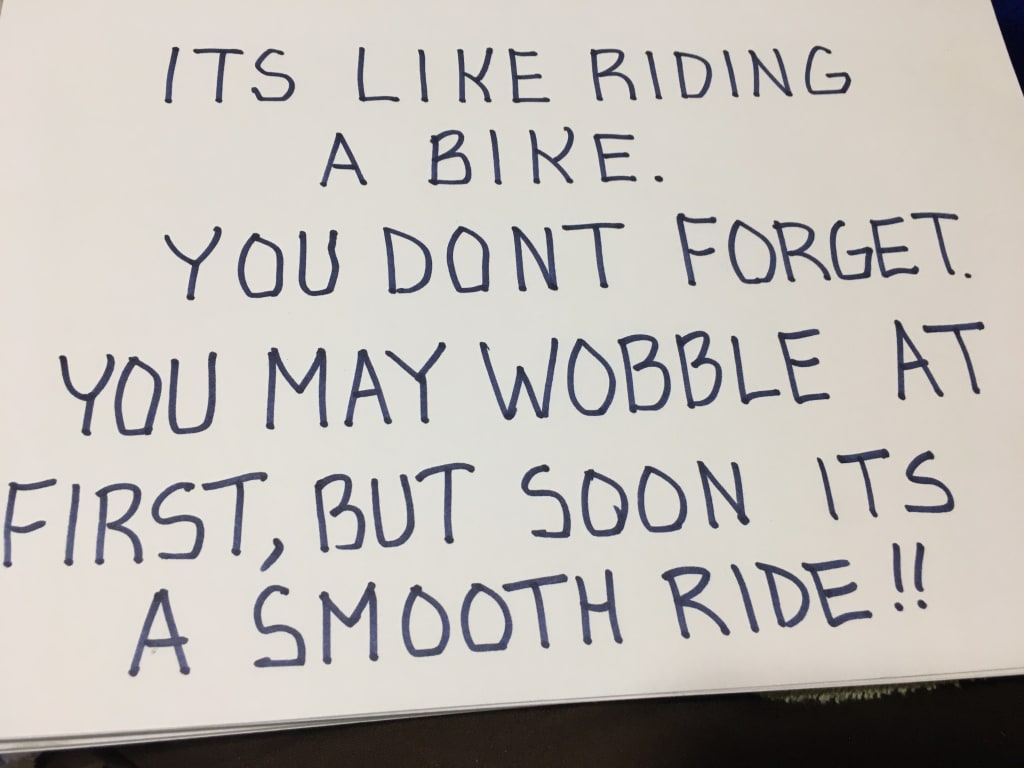 ITS LIKE RIDING
A BIKE.
YOU DONT FORGET.
YOU MAY WOBBLE AT
FIRST, BUT SOON ITS
A SMOOTH RIDE!!